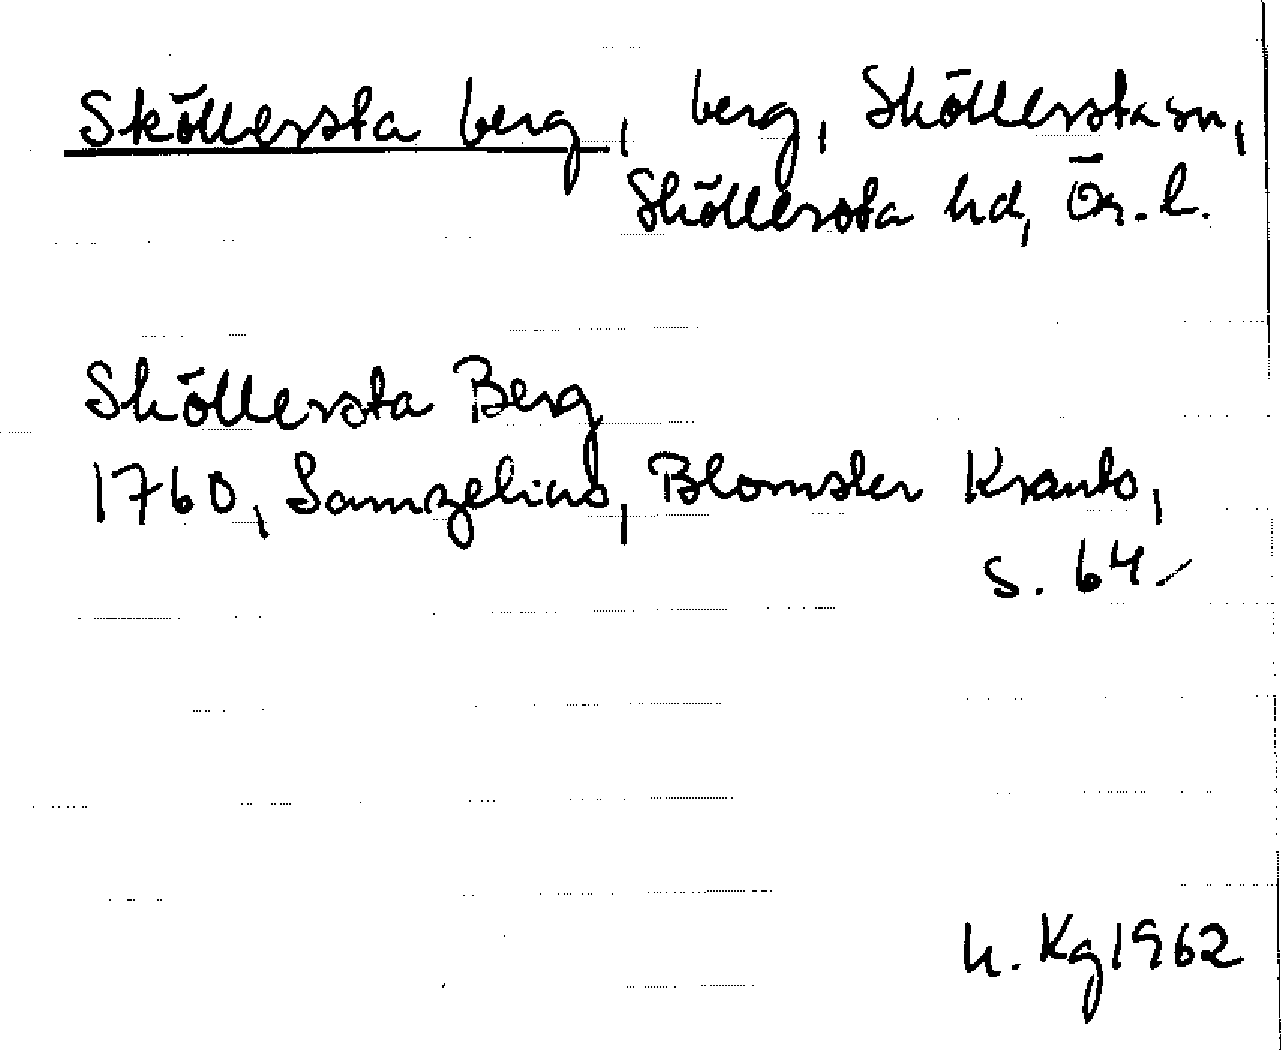 Sköllersta berg, berg, Sköllersta sn,
Sköllersta hd, Ör. l.
Sköllersta Berg
1760, Samzelius, Blomster Krants,
s. 64
h. Kg 1962